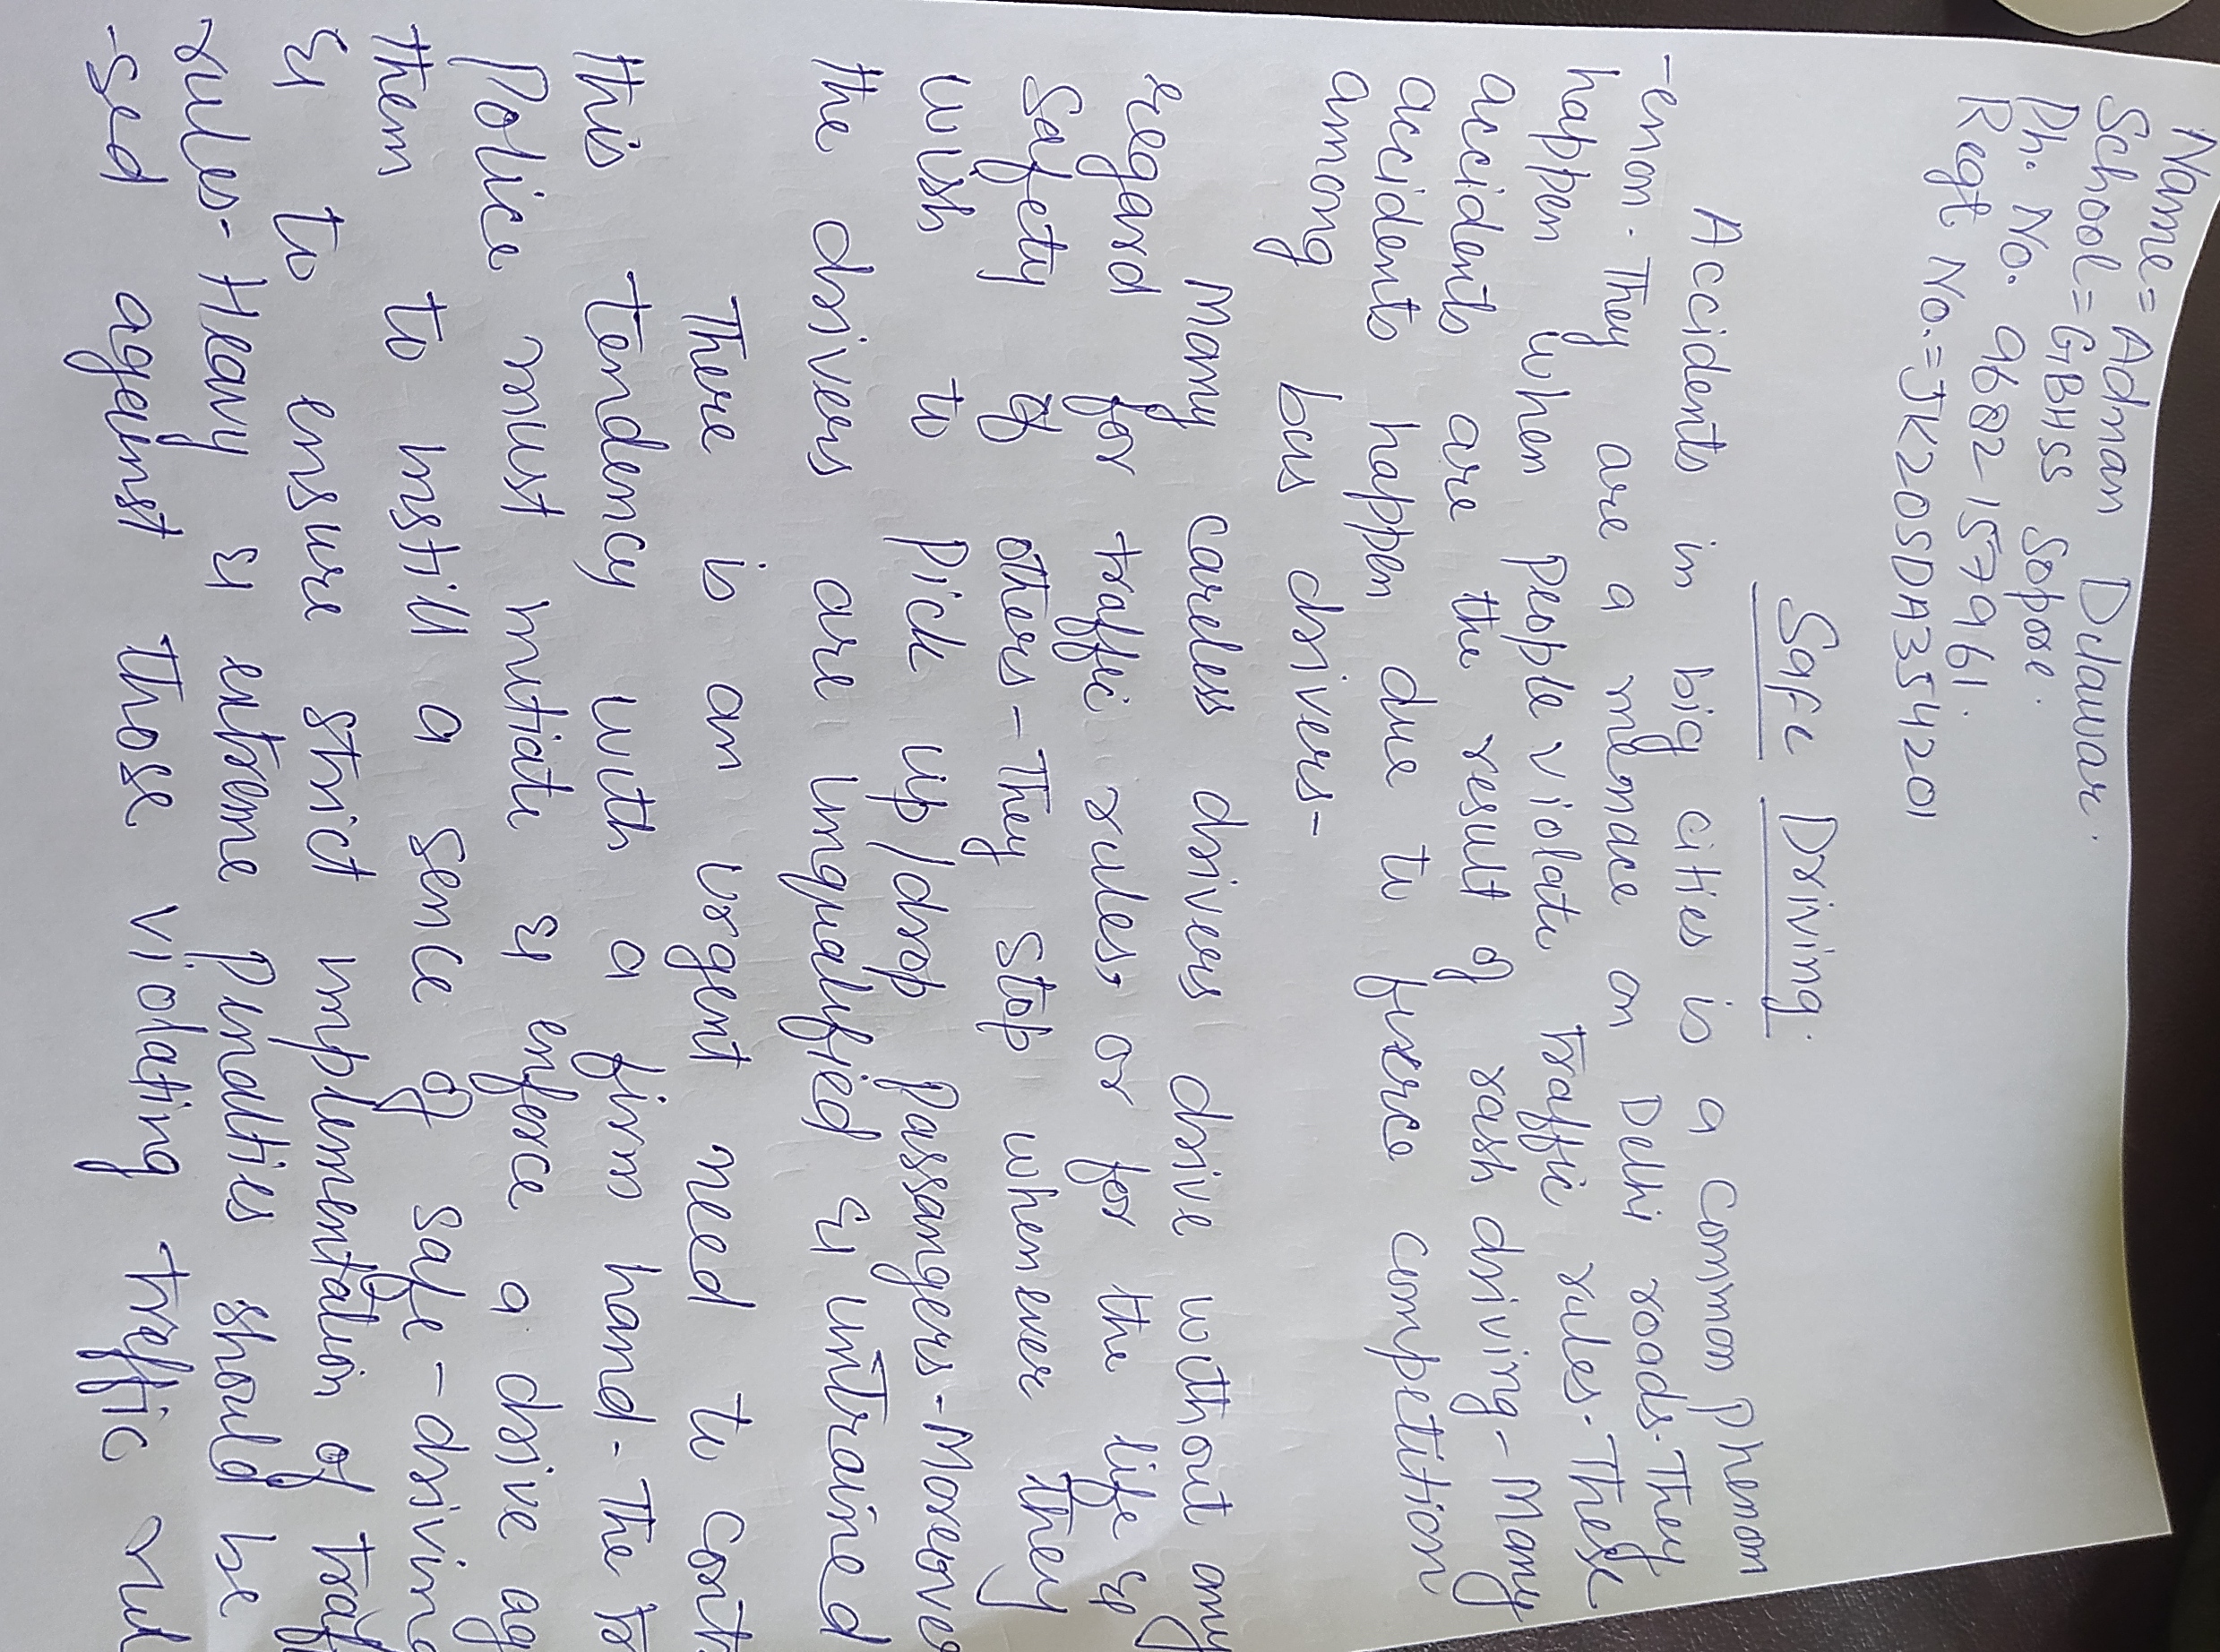 Name= Adnan Dilawar.
School= GBHSS Sopore.
Ph. No. 9682157961.
Regt. No.=JK20SDA354201
Safe Driving.
Accidents in big cities is a common Phenom
-enon. They are a menace on Delhi roads. They
happen when people violate traffic rules. These
accidents are the result of rash driving- Many
accidents happen due to fierce competition
among bus drivers-
Many careless drivers drive without any
regard for traffic rules, or for the life &
Safety of others- They stop whenever they
wish to Pick up/drop Passangers- Moreove
the drivers are unqualified & untrained
There is an urgent need to cont
this tendency with a firm hand- The
Police must initiate & enforce a drive ag
them to instill a sence of safe-driving
& to ensure strict implementation of traf
rules- Heavy & extreme Pinalties should be
-sed against those violating traffic rul